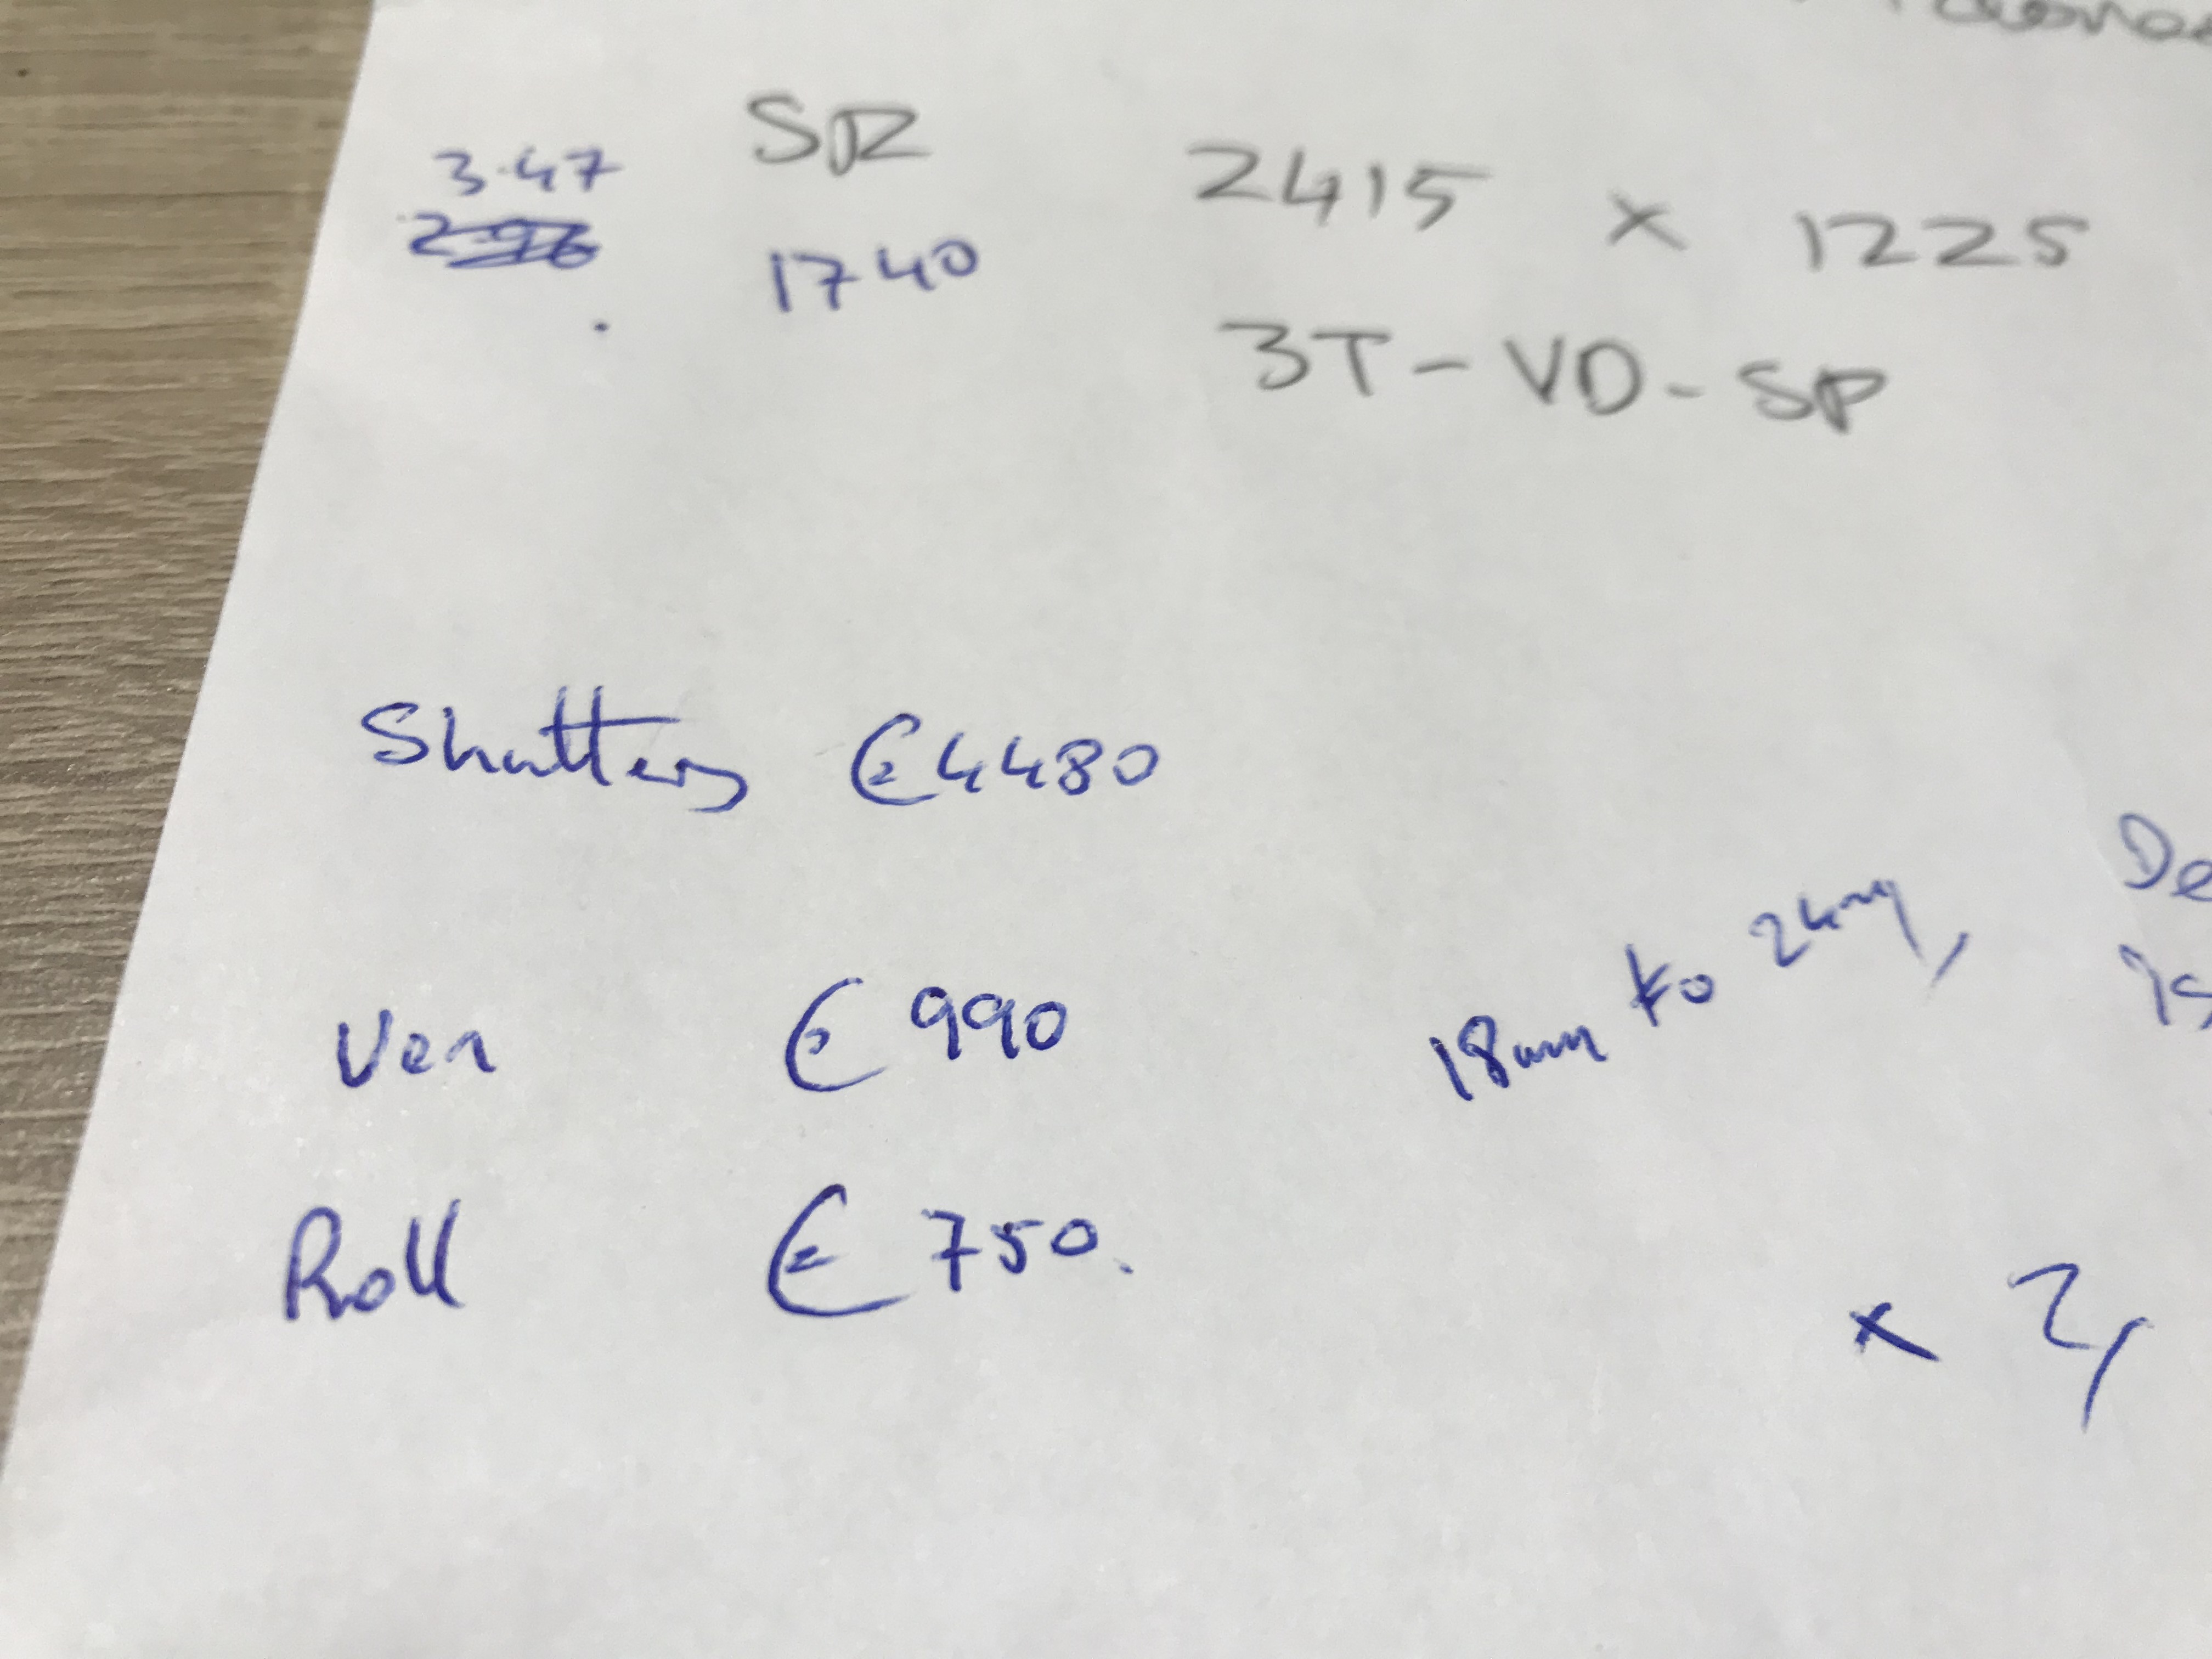 3.47 SR 2415 x 1225
1740
3T-VD-SP
Shutters €4480
Ven €990 18mm to 24m,
Roll €750.
x 2,